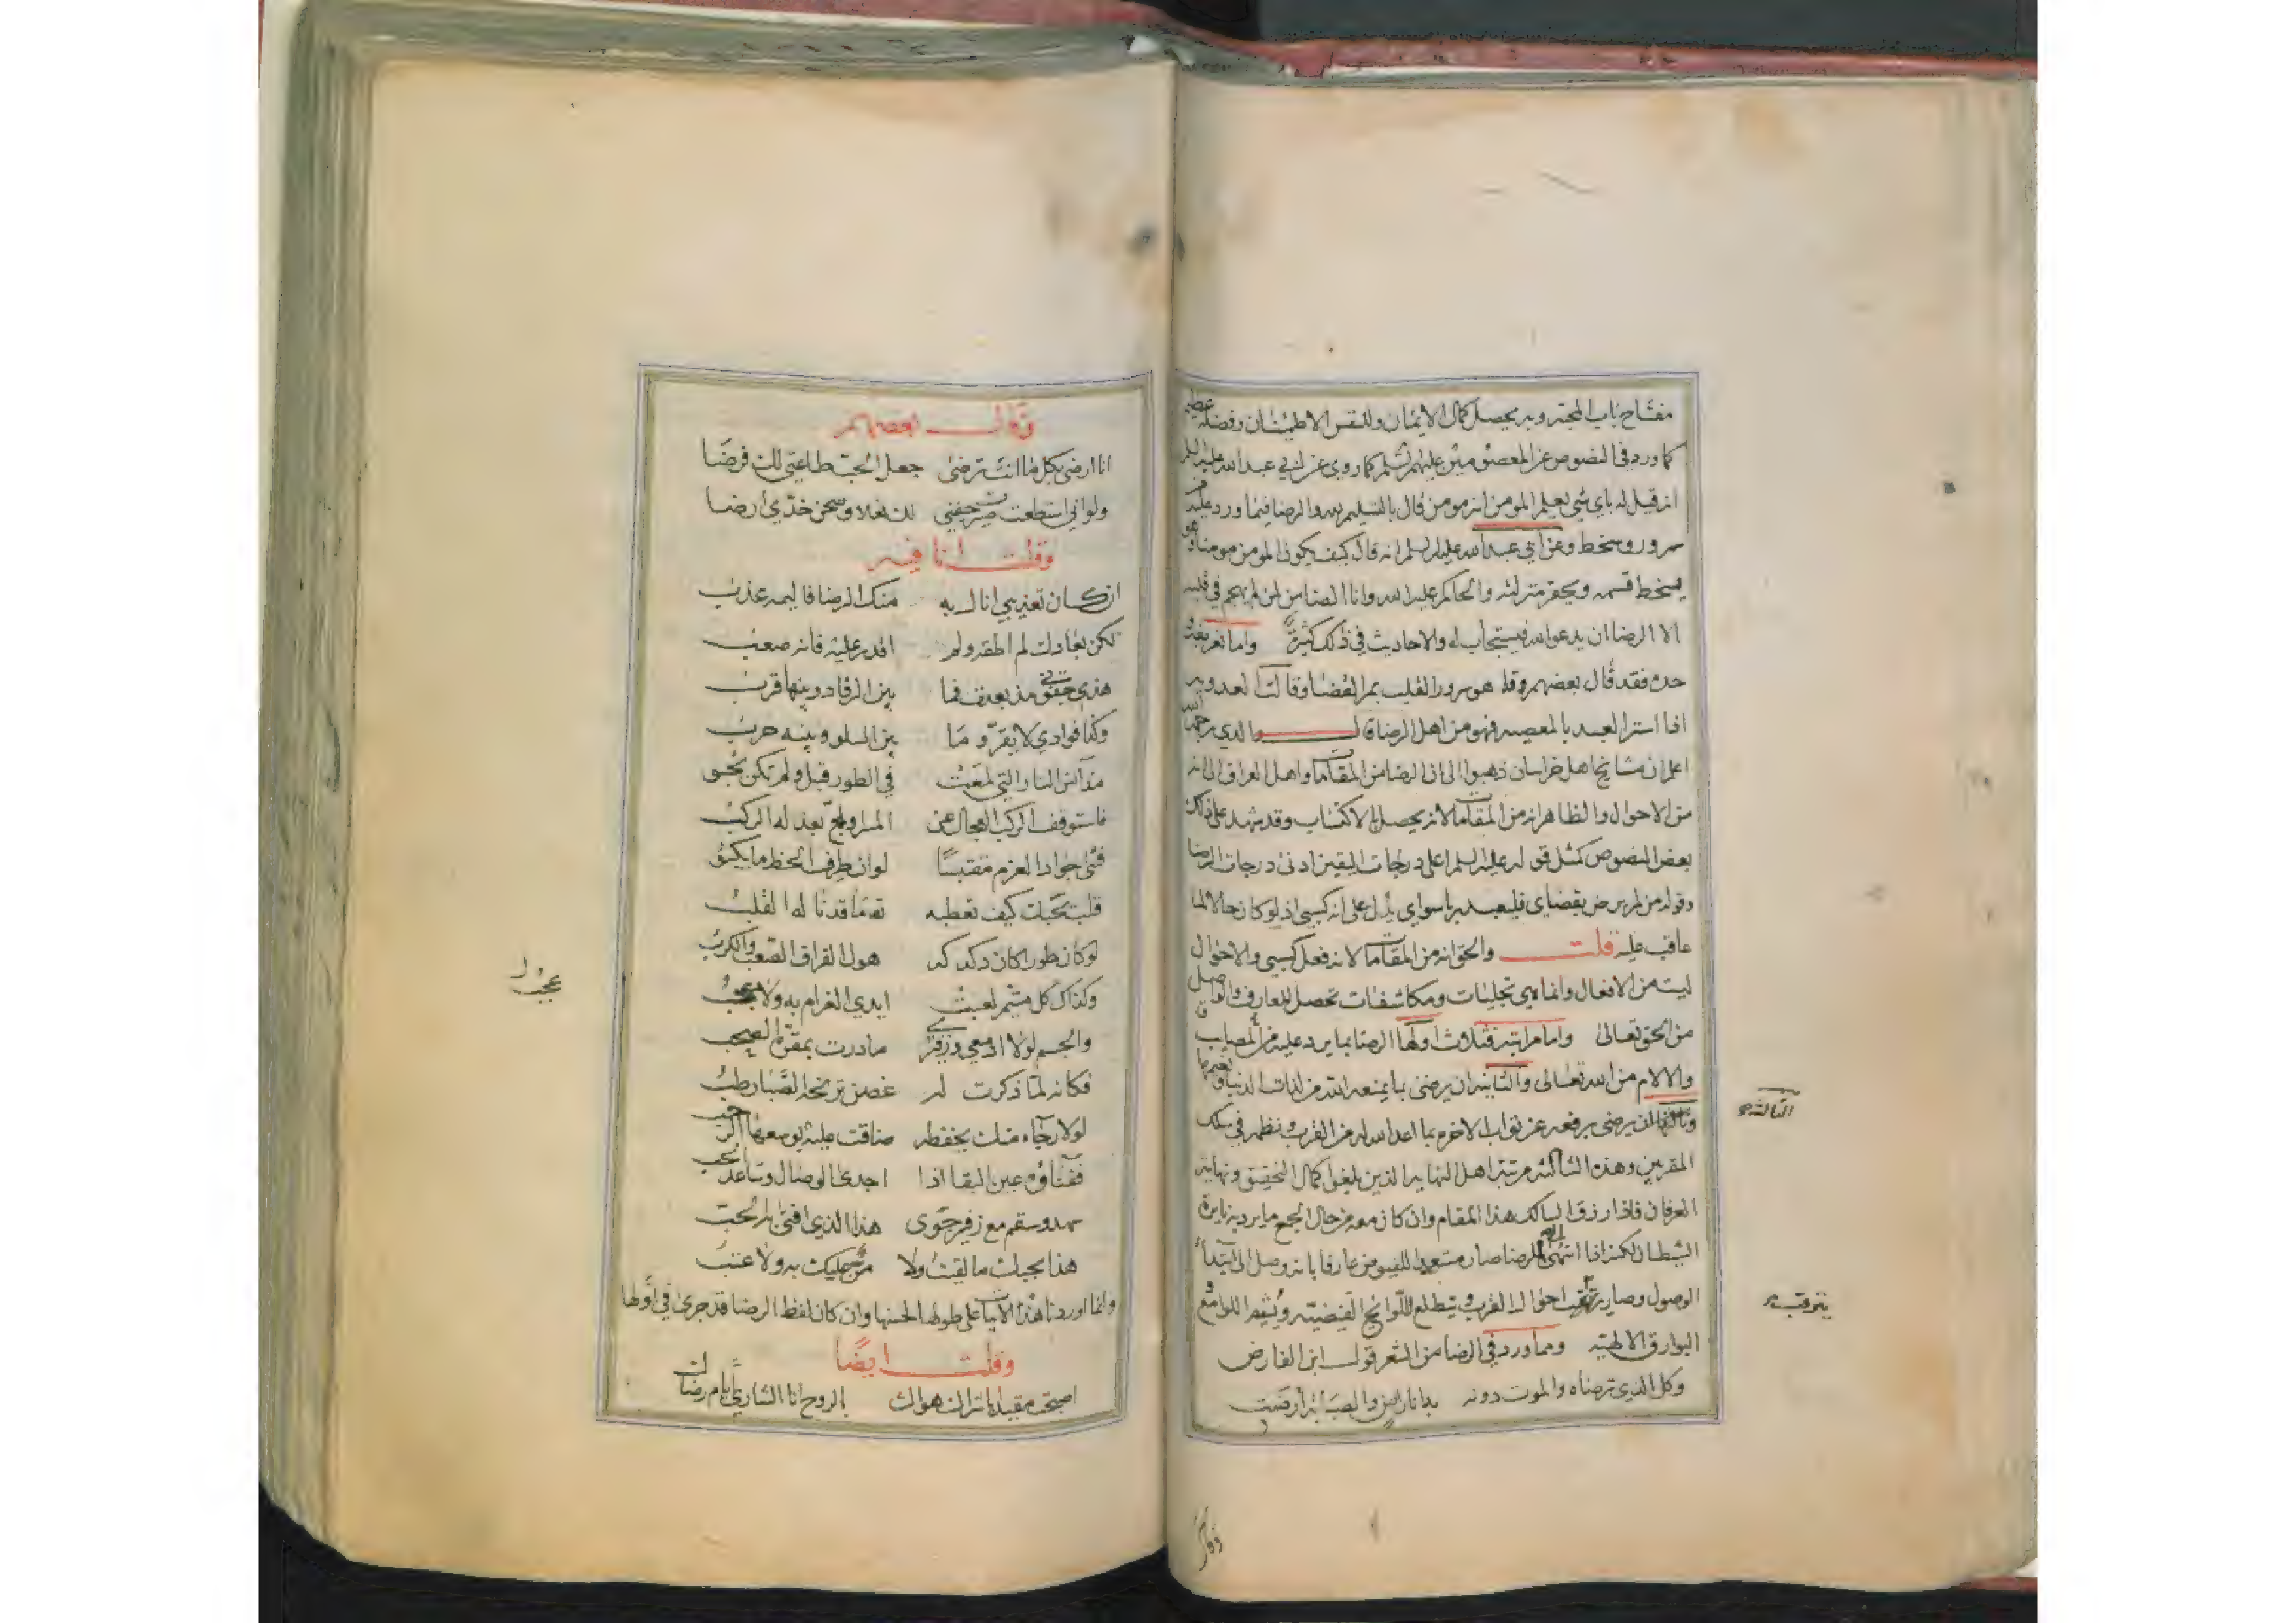 مفتاح باب المحبة وبه يحصل كمال الايمان وللنفس الاطمئنان وفضله عظيم
كما ورد في النصوص عن المعصومين عليهم السلم كما روي عن ابي عبد الله عليه السلم
انه قيل له باي شي يعلم المومن انه مومن قال بالتسليم لله والرضا فيما ورد عليه من
سرور وسخط وعن ابي عبد الله عليه السلم انه قال كيف يكون المومن مومنا وهو
يسخط قسمه ويحقر منزلته والحاكم عليه الله وانا الضامن لمن لم يهجم في قلبه
الا الرضا ان يدعو الله فيستجاب له والاحاديث في ذلك كثيرة واما تعريفه و
حده فقد قال بعضهم هو سرور القلب بمر القضا وقالت العدويه
اذا استر العبد بالمعصيه فهو من اهل الرضا قال والدي رحمه الله
اعلم ان مشايخ اهل خراسان ذهبوا الى ان الرضا من المقامات واهل العراق الى انه
من الاحوال والظاهر انه من المقامات لانه يحصل بالاكتساب وقد شهد على ذلك
بعض النصوص كمثل قوله عليه السلم اعلى درجات اليقين ادنى درجات الرضا
وقوله من لم يرض بقضاي فليعبد ربا سواي يدل على انه كسبي اذ لو كان حالا لما
عاقب عليه قلت والحق انه من المقامات لانه فعل كسبي والاحوال
ليست من الافعال وانما هي تجليات ومكاشفات تحصل للعارف والواصل
من الحق تعالى واما مراتبه فثلاث اولها الرضا بما يرد عليه من المصايب
والالام من الله تعالى والثانيه ان يرضى بما يمنعه الله من لذات الدنيا ونعيمها
وثالثها ان يرضى برفعه عن ثواب الاخره بما اعد الله له من القرب ونظمه في سلك
الثالثه
المقربين وهذه الثالثه مرتبة اهل النهايه الذين بلغوا كمال التحقيق ونهاية
العرفان فاذا رزق السالك هذا المقام وان كان معه من حال الجمع ما يرد به نايرة
الشيطان لكنه اذا انتهى الى الرضا صار مستعدا للفيوض عارفا بانه وصل الى ابتداء
الوصول وصار يترقب احوال القرب ويتطلع للوائح الفيضيه و اللوامع و
يترقب
البوارق الالهيه ومما ورد في الرضا من الشعر قول ابن الفارض
وكل الذي ترضاه والموت دونه به انا راض والصبابة ارضت
وقال
وقال بعضهم
انا ارضى بكل ما انت ترضى جعل الحب طاعتي لك فرضا
ولو اني استطعت صيرت جفني لك نعلا وصحن خدي ارضا
وقلت انا فيه
ان كان تعذيبي انال به منك الرضا فاليمه عذب
لكن بعادك لم اطقه ولم اقدر عليه فانه صعب
هذي جفوني مذ بعدت فما بين الرقاد وبينها قرب
وكذا فوادي لا يقر وما بين السلو وبينه حرب
مذ آنس النار التي لمعت في الطور قبل ولم تكن تخبو
فاستوقف الركب العجال عن المسرى ولج بعد له الركب
فثنى جواد العزم مقتبسا لو ان طرف الحظ ما يكبو
قلب بحبك كيف تعطبه تهما قدتا له القلب
لو كان طورا كان دكدكه هول الفراق الصعب والكرب
وكذاك كل متيم لعبت ايدي الغرام به ولا عجب
عجب
والجسم لولا ادمعي وزفرتي ما درت بمقره الصحب
فكانه لما ذكرت له غصن ترنحه الصبا رطب
لولا رجاء منك يحفظه ضاقت عليه بوسعها الرحب
ففناؤه عين البقا اذا اجدى الوصال وساعد الحب
سهد وسقم مع زفير جوى هذا الذي افتى به الحب
هذا بحبك ما لقيت ولا من عليك به ولا عتب
وانما اوردنا هذه الابيات على طولها لحسنها وان كان لفظ الرضا قد جرى في اولها
وقلت ايضا
اصبحت مقيدا باشراك هواك بالروح انا الشاري ايام رضاك